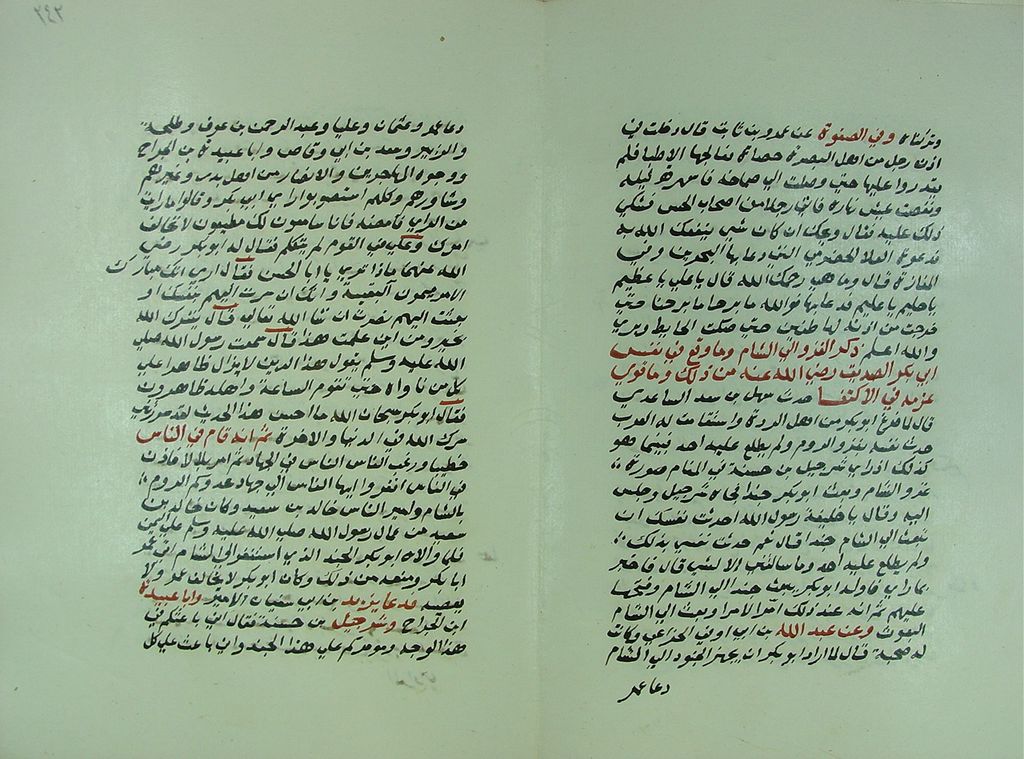 وتركناه وفي الصفوة عن عمرو بن ثابت قال دخلت في
اذن رجل من اهل البصرة حصاة فعالجها الاطبا فلم
يقدروا عليها حتى وصلت الي صماخه فاسهرته ليله
ونغصت عيش نهاره فاتي رجلا من اصحاب الحسن فشكي
ذلك عليه فقال ويحك ان كان شي ينفعك الله به
فدعوة العلا الحضرمي التي دعا بها في البحر وفي
المفازة قال وما هي رحمك الله قال يا علي يا عظيم
يا حليم يا عليم فدعا بها فوالله ما برحنا حتي
خرجت من اذنه لها طنين حتي صكت الحايط وبري
والله اعلم ذكر الغزو الي الشام وما وقع في نفس
ابي بكر الصديق رضي الله عنه من ذلك وما قوي
عزمه في الاكتفا حدث سهل بن سعد الساعدي
قال لما فرغ ابو بكر من اهل الردة واستقامت له العرب
حدث نفسه بغزو الروم ولم يطلع عليه احد فبينما هو
كذلك اذ راي شرحبيل بن حسنة في المنام صورة
غزو الشام وبعث ابو بكر جندا فجاه شرحبيل وجلس
اليه وقال يا خليفة رسول الله احدثت نفسك ان
تبعث الي الشام جندا قال نعم حدثت نفسي بذلك
ولم يطلع عليه احد وما سالتني الا لشي قال فاخبره
بما راي فاوله ابو بكر ببعث جند الي الشام وفتحها
عليهم ثم انه عند ذلك امر الامرا وبعث الي الشام
البعوث وعن عبد الله بن ابي اوفي الخزاعي وكانت
له صحبة قال لما اراد ابو بكر ان يجهز الجنود الي الشام
دعا عمر
٢٤٢
دعا عمر وعثمان وعليا وعبد الرحمن بن عوف وطلحة
والزبير وسعد بن ابي وقاص وابا عبيدة بن الجراح
ووجوه المهاجرين والانصار من اهل بدر وغيرهم
وشاورهم وكلهم استصوبوا راي ابي بكر وقالوا ما رايت
من الراي فامضه فانا سامعون لك مطيعون لا نخالف
امرك وعلي في القوم لم يتكلم فقال له ابو بكر رضي
الله عنهما ماذا تري يا ابا الحسن فقال اري انك مبارك
الامر ميمون النقيبة وانك ان سرت اليهم بنفسك او
بعثت اليهم نصرت ان شا الله تعالي قال بشرك الله
بخير ومن اين علمت هذا قال سمعت رسول الله صلي
الله عليه وسلم يقول هذا الدين لا يزال ظاهرا علي
كل من ناواه حتي تقوم الساعة واهله ظاهرون
فقال ابو بكر سبحان الله ما احسن هذا الحديث لقد سررتني
سرك الله في الدنيا والاخرة ثم انه قام في الناس
خطيبا ورغب الناس في الجهاد ثم امر بلالا فاذن
في الناس انفروا ايها الناس الي جهاد عدوكم الروم
بالشام وامير الناس خالد بن سعيد وكان خالد بن
سعيد من عمال رسول الله صلي الله عليه وسلم علي اليمن
فلما ولاه ابو بكر الجند الذي استنفر الي الشام اتي عمر
ابا بكر ومنعه من ذلك وكان ابو بكر لا يخالف عمر ولا
يعصيه فدعا يزيد بن ابي سفيان الامير وابا عبيدة
ابن الجراح وشرحبيل بن حسنة فقال اني باعثكم في
هذا الوجه ومومركم علي هذا الجند واني باعث علي كل